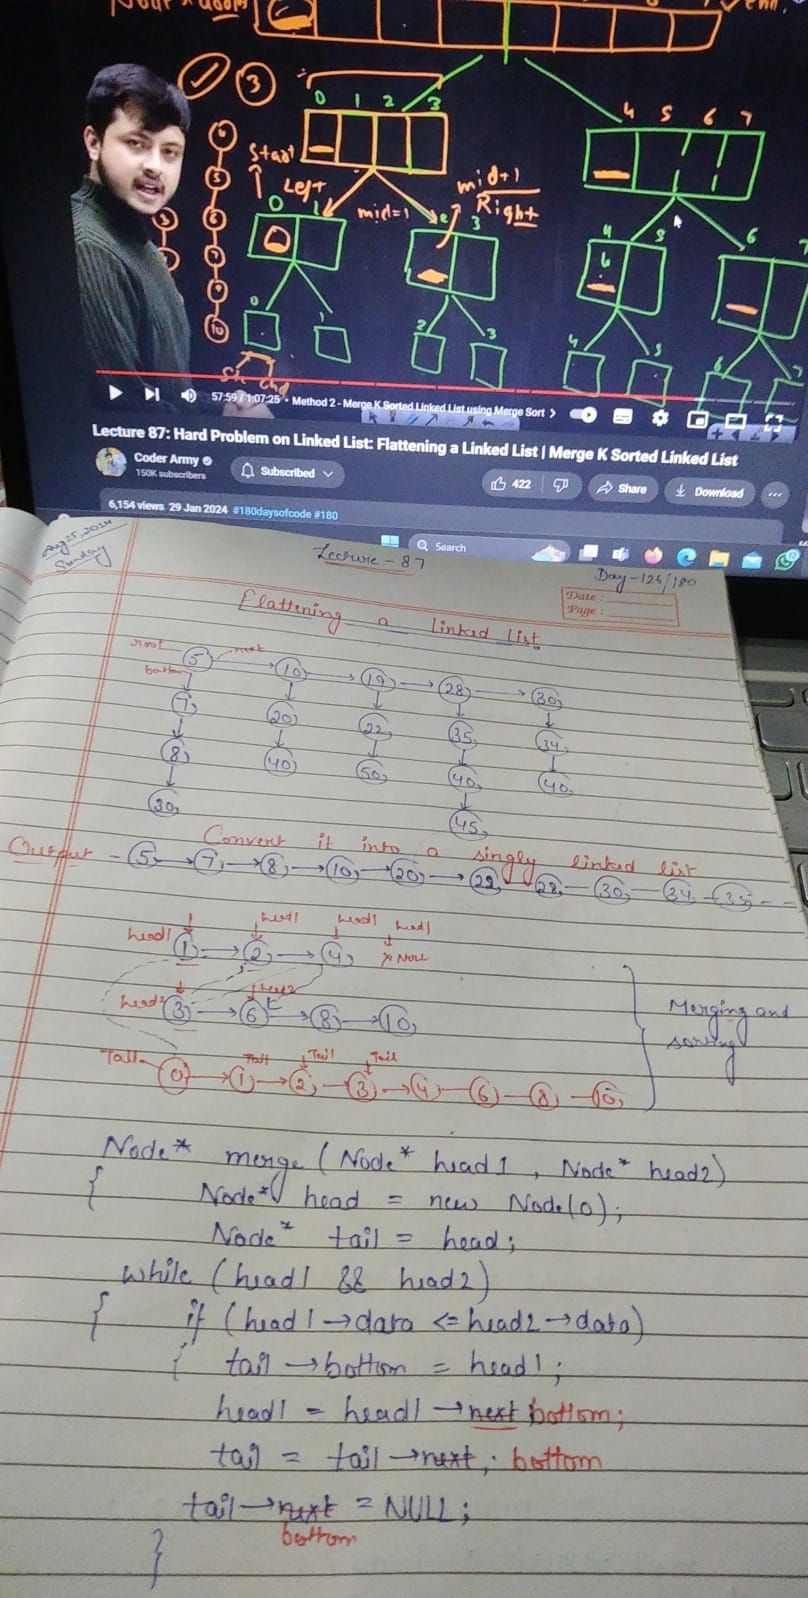 3
0 1 2 3
4 5 6 7
Start
Left
0 1
mid=1
mid+1
Right
2 3
4 5
6 7
0 1
2 3
4 5
6 7
10
57:59 / 1:07:25 • Method 2 - Merge K Sorted Linked List using Merge Sort >
Lecture 87: Hard Problem on Linked List: Flattening a Linked List | Merge K Sorted Linked List
Coder Army
150K subscribers
Subscribed
422
Share
Download
...
6,154 views 29 Jan 2024 #180daysofcode #180
Search
Aug 25, 2024
Sunday
Lecture - 87
Day - 124/180
Date :
Page :
Flattening a linked list
root 5 next → 10 → 19 → 28 → 30
bottom
7 20 22 35 34
8 40 50 40 40
30 45
Convert it into a singly linked list
Output - 5 → 7 → 8 → 10 → 20 → 22 - 28 - 30 - 34 - 35 - -
head1 head1 head1
head1 1 → 2 → 4 × NULL
head2
head2 3 → 6 → 8 → 10
Merging and
sorting
Tail Tail Tail Tail
0 → 1 → 2 - 3 → 4 - 6 - 8 - 10
Node* merge (Node* head1 , Node* head2)
{ Node* head = new Node(0);
Node* tail = head;
while (head1 && head2)
{ if (head1→data <= head2→data)
{ tail →bottom = head1;
head1 = head1 →next bottom;
tail = tail →next; bottom
tail →next = NULL;
bottom
}